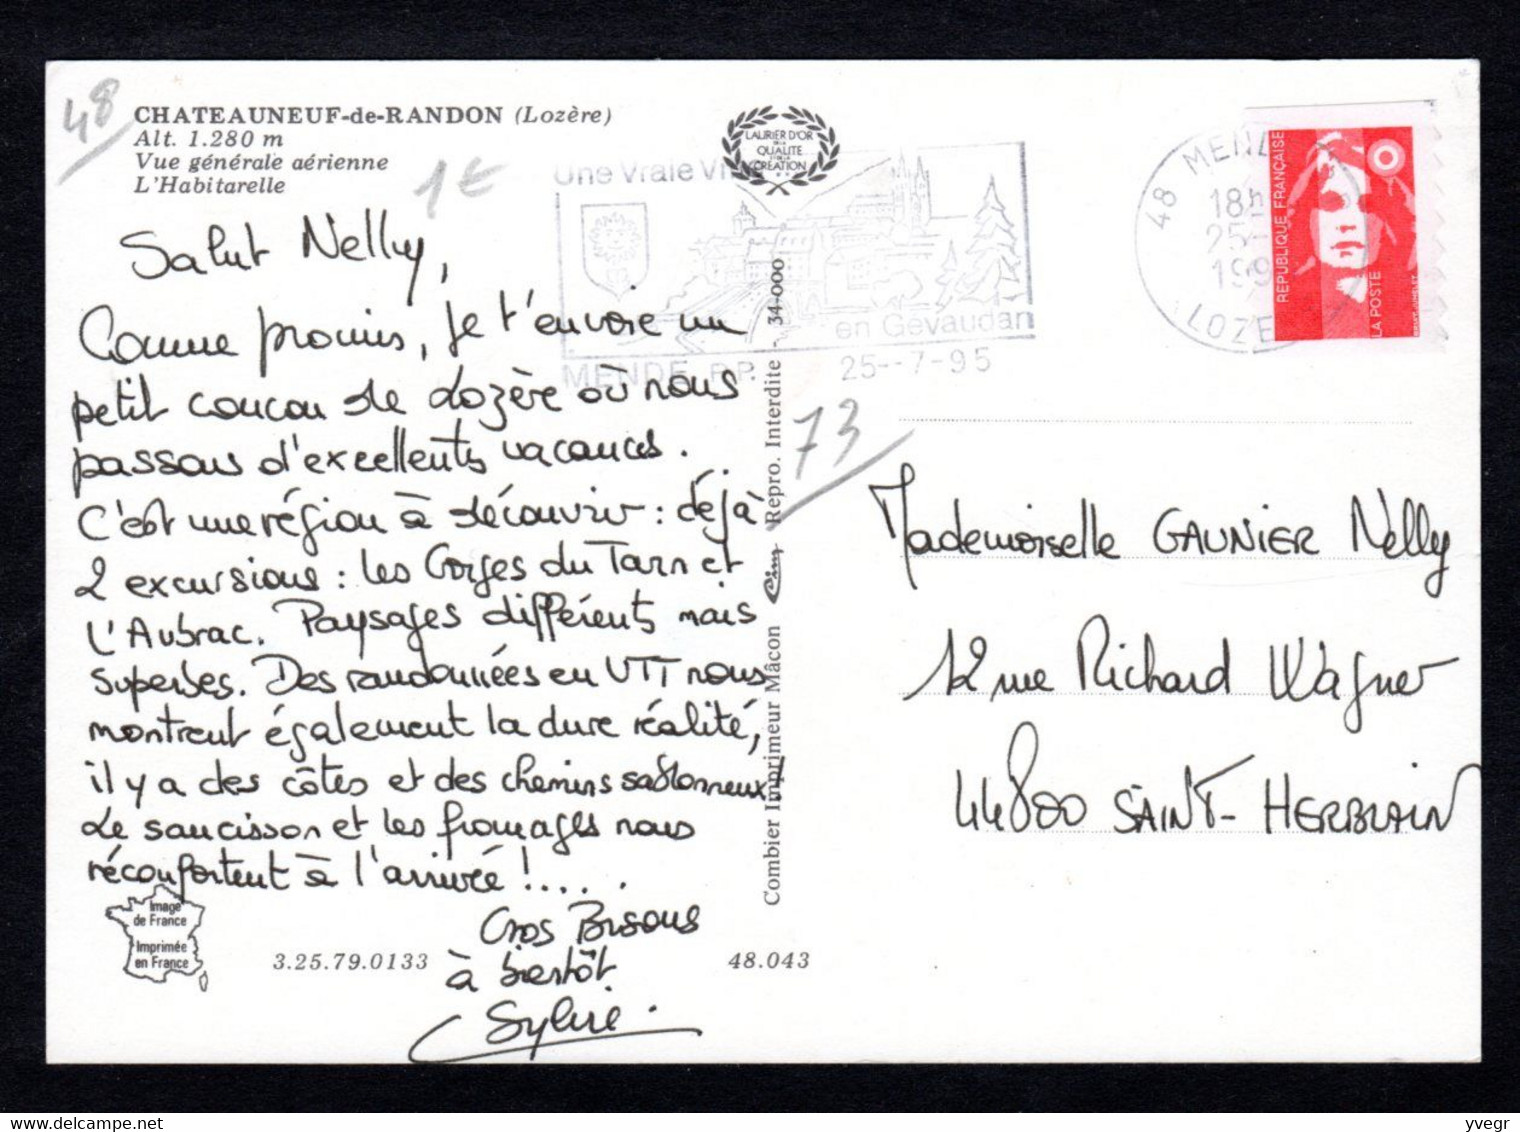 48
CHATEAUNEUF-de-RANDON (Lozère)
Alt. 1.280 m
Vue générale aérienne
L'Habitarelle
1€
Salut Nelly,
Comme promis, je t'envoie un
petit coucou de Lozère où nous
passons d'excellents vacances.
C'est une région à découvrir : déjà
2 excursions : les Gorges du Tarn et
L'Aubrac. Paysages différents mais
superbes. Des randonnées en VTT nous
montrent également la dure réalité,
il y a des côtes et des chemins sablonneux!
Le saucisson et les fromages nous
réconfortent à l'arrivée !.....
Gros Bisous
à bientôt
Sylvie.
Image
de France
Imprimée
en France
3.25.79.0133
48.043
LAURIER D'OR
DE LA
QUALITE
ET DE LA
CREATION
Une Vraie Ville
en Gévaudan
MENDE R.P. 25--7-95
Combier Imprimeur Mâcon Cim Repro. Interdite - 34-000
73
48 MENDE
18h
25-
199
LOZE
REPUBLIQUE FRANÇAISE
LA POSTE
Mademoiselle GAUNIER Nelly
12 rue Richard Wagner
44800 SAINT-HERBLAIN
yvegr